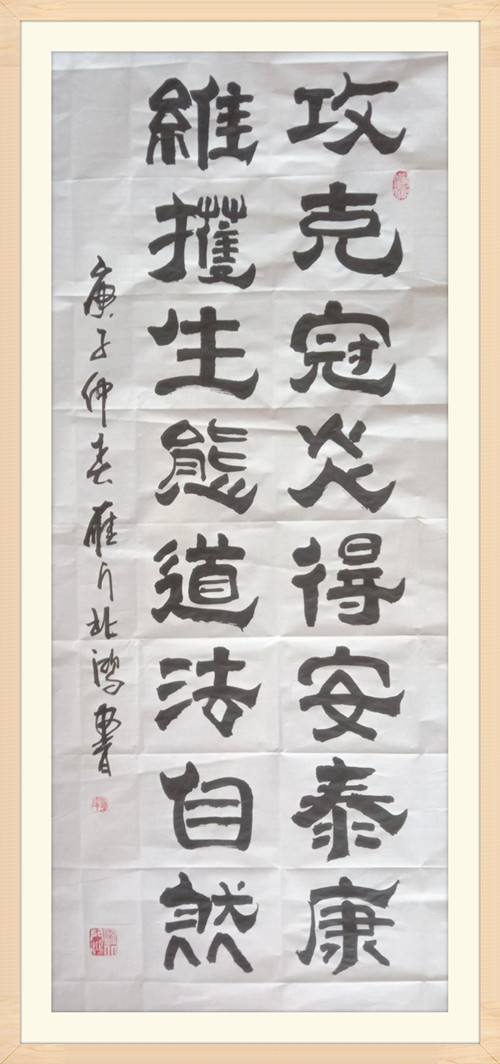 攻克冠炎得安泰康
維擭生態道法自然
庚子仲春雁门北鸿書